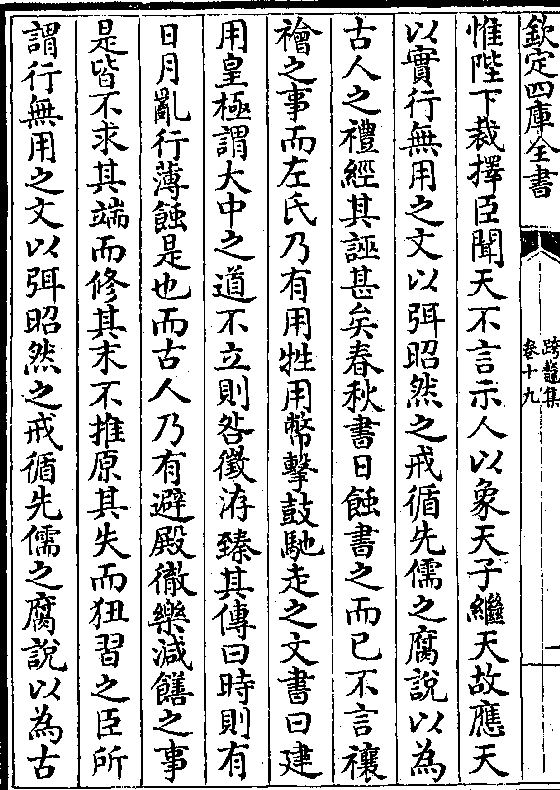 欽定四庫全書
跨鼇集
卷十九
惟陛下裁擇臣聞天不言示人以象天子繼天故應天
以實行無用之文以弭昭然之戒循先儒之腐說以為
古人之禮經其誣甚矣春秋書日蝕書之而已不言禳
禬之事而左氏乃有用牲用幣擊鼓馳走之文書曰建
用皇極謂大中之道不立則咎徵洊臻其傳曰時則有
日月亂行薄蝕是也而古人乃有避殿徹樂減饍之事
是皆不求其端而修其末不推原其失而狃習之臣所
謂行無用之文以弭昭然之戒循先儒之腐說以為古